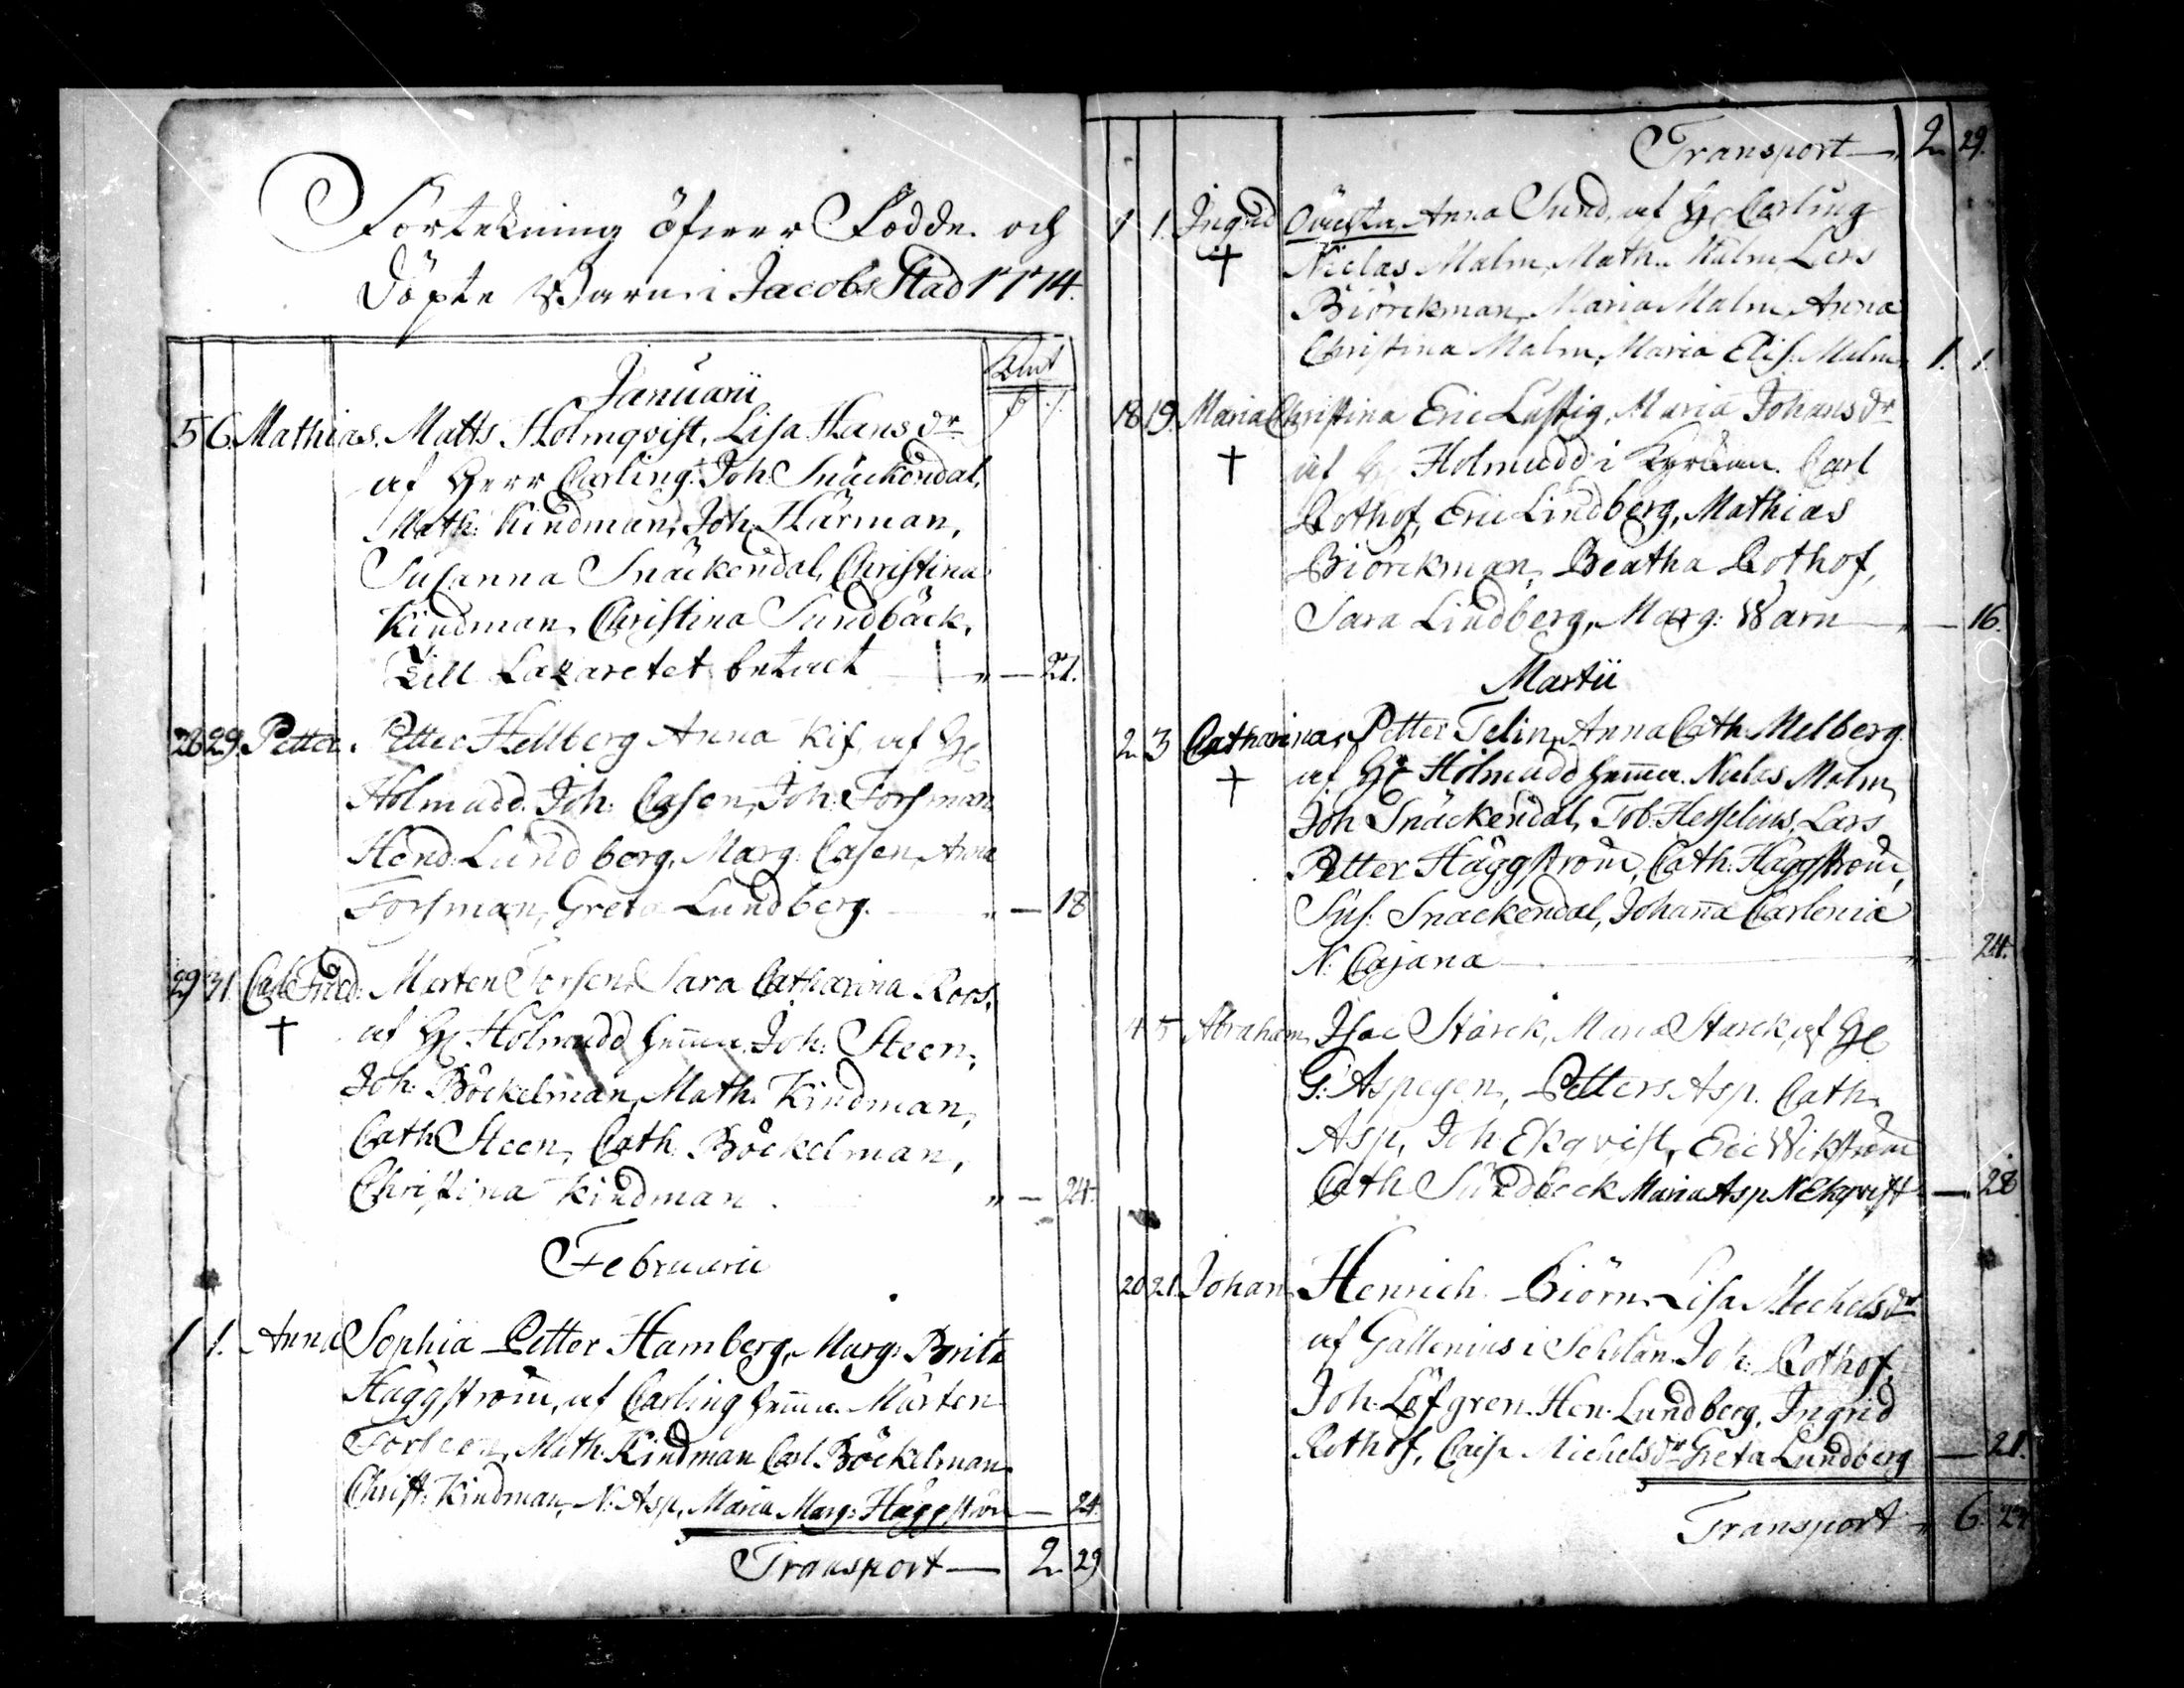 Förtekning öfwer Födde och
Döpte Barn i Jacobs Stad 1774.
Januarii
5 6. Mathias. Matts Holmqvist, Lisa Hans dr
af Herr Carling. Joh: Snäckendal,
Math: Kindman, Joh. Härman,
Susanna Snäckendal, Christina
Kindman, Christina Sundbäck,
Till Lazaretet betalt " — 21.
28 29. Petter. Petter Hellberg Anna Kif, af H
Holmudd. Joh: Casen, Joh: Forsman
Hend: Lundberg, Marg: Casen, Anna
Forsman, Greta Lundberg. " — 18
29 31. Carl Fried: Morten Forsen, Sara Catharina Roos,
† af H Holmudd hemma. Joh: Steen,
Joh: Böckelman, Math: Kindman,
Cath: Steen, Cath: Böckelman,
Christina Kindman. " — 24.
Februarii
1 1. Anna Sophia Petter Hamberg, Marg: Brita
Häggström, af Carling hemma. Mårten
Forseen, Math: Kindman Carl Böckelman
Christ: Kindman, N. Asp, Maria Marg: Häggström — 24.
Transport — 2 29
Transport — 2 29.
1 1. Ingrid Anna Sund, af H Carling
† Niclas Malm, Math: Malm, Lars
Biörckman, Maria Malm, Anna
Christina Malm, Maria Elis: Malm, 1. 1.
18 19. Maria Christina Eric Lustig, Maria Johans dr
† af H Holmudd i Kyrckan. Carl
Rothof, Eric Lindberg, Mathias
Biörckman, Beatha Rothof,
Sara Lindberg, Marg: Warn " — 16.
Martii
2 3 Catharina, Petter Telin, Anna Cath: Melberg.
† af H Holmudd hemma. Niclas Malm,
Joh Snäckendal, Tob: Hesselius, Lars
Petter Häggström, Cath: Häggström,
Sus: Snäckendal, Johana Carlenia
N. Cajana " — 24.
4 5 Abraham, Isac Starck, Maria Starck, af H
G: Aspegen, Petters Asp. Cath:
Asp, Joh: Ekqvist, Eric Wikström
Cath Sundbeck Maria Asp N Ekqvist — 28
20 21. Johan, Henrich Biörn, Lisa Mechels dr
af Gallenius i Scholan. Joh: Rothof,
Joh: Löfgren. Hen: Lundberg, Ingrid
Rothof, Caisa Michels dr Greta Lundberg — 21.
Transport " 6. 27